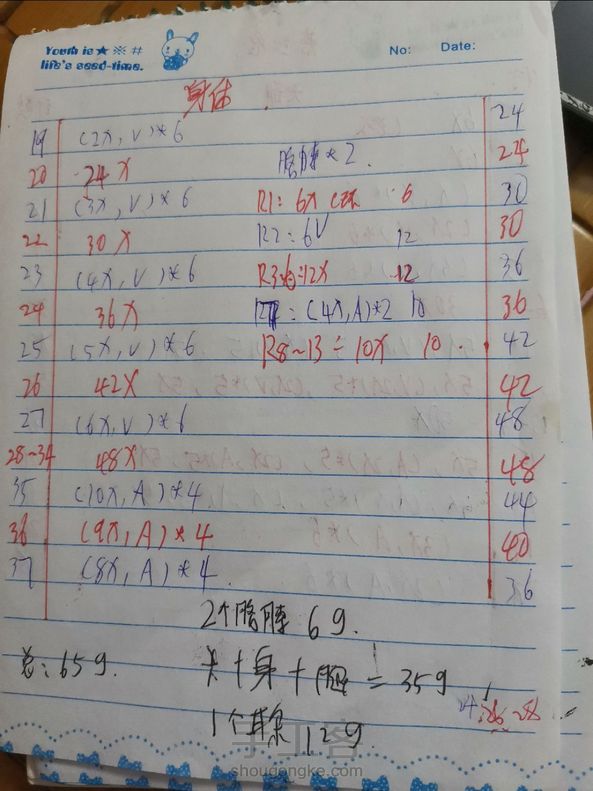 Youth is ★ ※ #
life's seed-time.
No: Date:
身体
19 (2X, V)*6 24
20 24X 胳膊*2. 24
21 (3X, V)*6 R1: 6X 6 30
22 30X R2: 6V 12 30
23 (4X, V)*6 12X 12 36
24 36X : (4X, A)*2 10 36
25 (5X, V)*6 R8~13 = 10X 10 42
26 42X 42
27 (6X, V)*6 48
28~34 48X 48
35 (10X, A)*4 44
36 (9X, A)*4 40
37 (8X, A)*4. 36
2个胳膊 6g.
总: 65g. 头+身+腿 = 35g
1个 12g.
手工客
shougongke.com